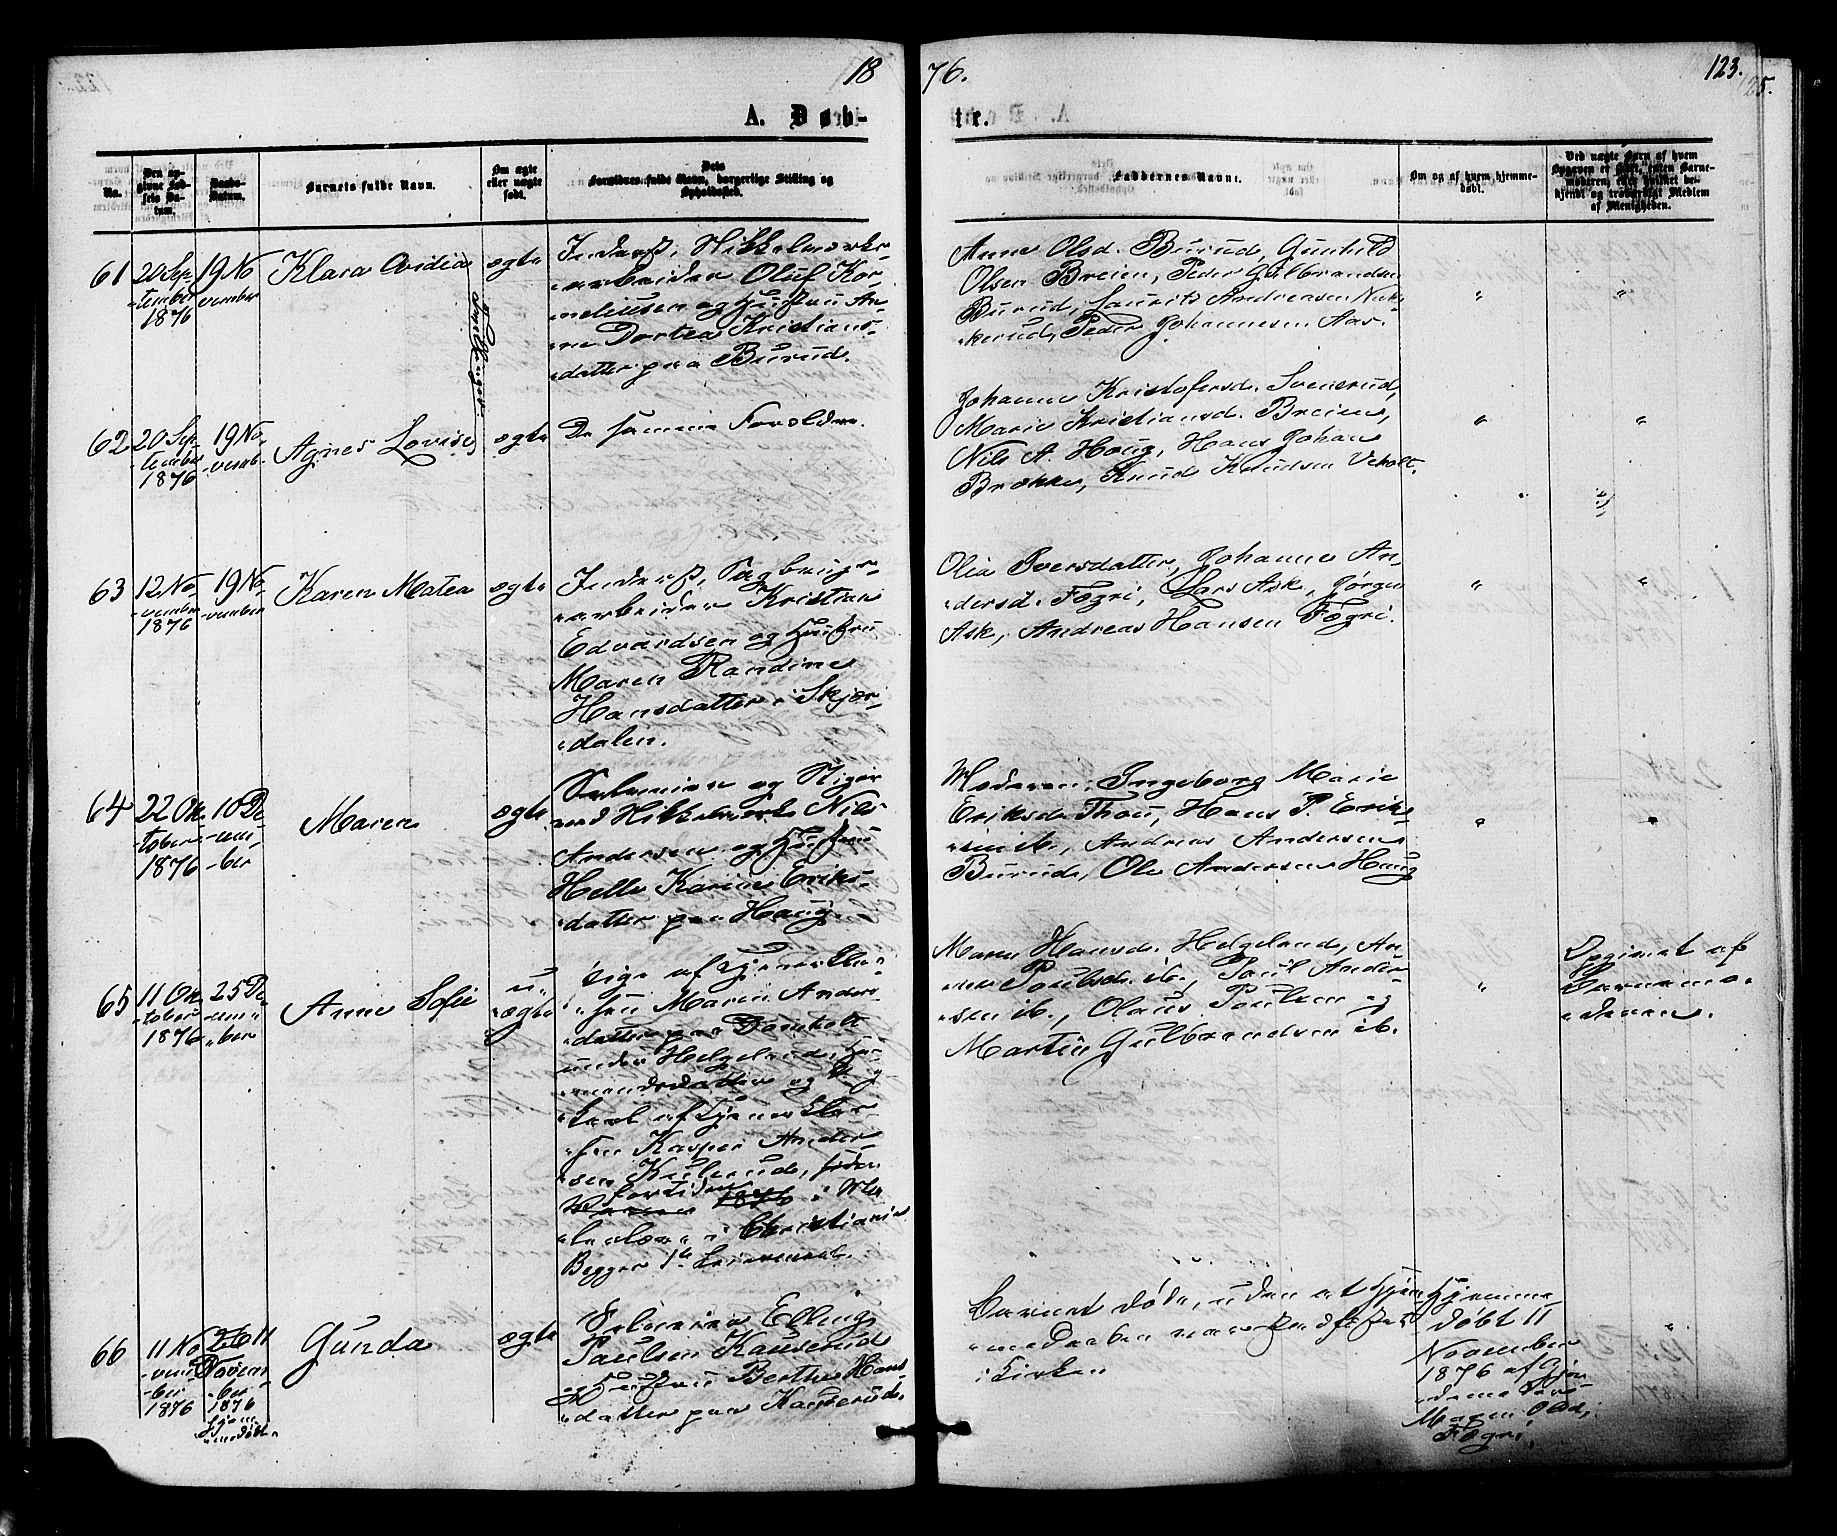 18
76.
123.
125.
A. Døb-
te.
No.
Den op-
givne Fød-
sels Da-
tum.
Daabs-
Datum.
Barnets fulde Navn.
Om ægte
eller uægte
født.
Dets
Forældres fulde Navn, borgerlige Stilling og
Opholdssted.
Faddernes Navne.
Om og af hvem hjemme-
døbt.
Ved uægte Børn af hvem
Opgaven er skeet, enten Barne-
moderen, eller hvilket be-
kjendt og troværdigt Medlem
af Menigheden.
61
20 Sep-
tember
1876
19 No
vember
Klara Ovidia
ægte
Inderst, Nikkelværks-
arbeider Oluf Kor-
neliusen og Hustru An-
ne Dortea Kristians-
datter paa Burud.
Anne Olsd. Burud, Gunhild
Olsen Breien, Peder Gulbrandsen
Burud, Laurits Andreasen
kerud, Peder Johannesen Aas.
"
"
62
20 Sep-
tember
1876
19 No
vemb.
Agnes Lovise
ægte
De samme Forældre.
Johanne Kristofersd. Svenerud,
Marie Kristiansd. Breien,
Nils A. Houg, Hans Johan
Brække, Knud Knudsen
"
"
63
12 No
vember
1876
19 No
vember
Karen Matea
ægte
Inderst, Sagbrugs-
arbeider Kristian
Edvardsen og Hustru
Maren Randine
Hansdatter i Skjær-
dalen.
Olia Iversdatter, Johanne An-
dersd. Fægri, Lars Ask, Jørgen
Ask, Andreas Hansen Fægri.
"
"
64
22 Ok
tober
1876
10 De
cem-
ber
Maren
ægte
Selveier og Stiger
ved Nikkelværk Nils
Andersen og Hustru
Helle Karine Eriks-
datter paa Haug.
Moderen, Ingeborg Marie
Eriksd. Thou, Hans P. Erik-
sen ib., Andreas Andersen
Burud, Ole Andersen Haug
"
"
65
11 Ok
tober
1876
25 De
cem-
ber
Anne Sofie
u-
ægte
Pige af Tjenerkla-
sen Maren Anders-
datter paa Damholt
under Helgeland,
mandsdatter og Ung-
karl af Tjenerklas-
sen Kasper Ander-
sen Kulerud,
fortiden
1876 i
i Christiania
Begges 1te Leiermaal.
Maren Hansd. Helgeland, An-
ne Paulsd. ib., Paul Ander-
sen ib., Olaus Paulsen og
Martin Gulbrandsen ib.
"
Opgivet af
Barnemo-
deren.
66
11 No
vem-
ber
1876
11
Novem-
ber
1876
hjem-
medøbt
Gunda
ægte
Selveier Elling
Paulsen Kauserud
og Hustru Berthe Hans-
datter paa Kauserud.
Barnet døde, uden at Hjem-
medaaben var stadfæstet
i Kirken
Hjemme
døbt 11
November
1876 af Gjor-
demoderen
Maren Olsd.
Fægri.
"